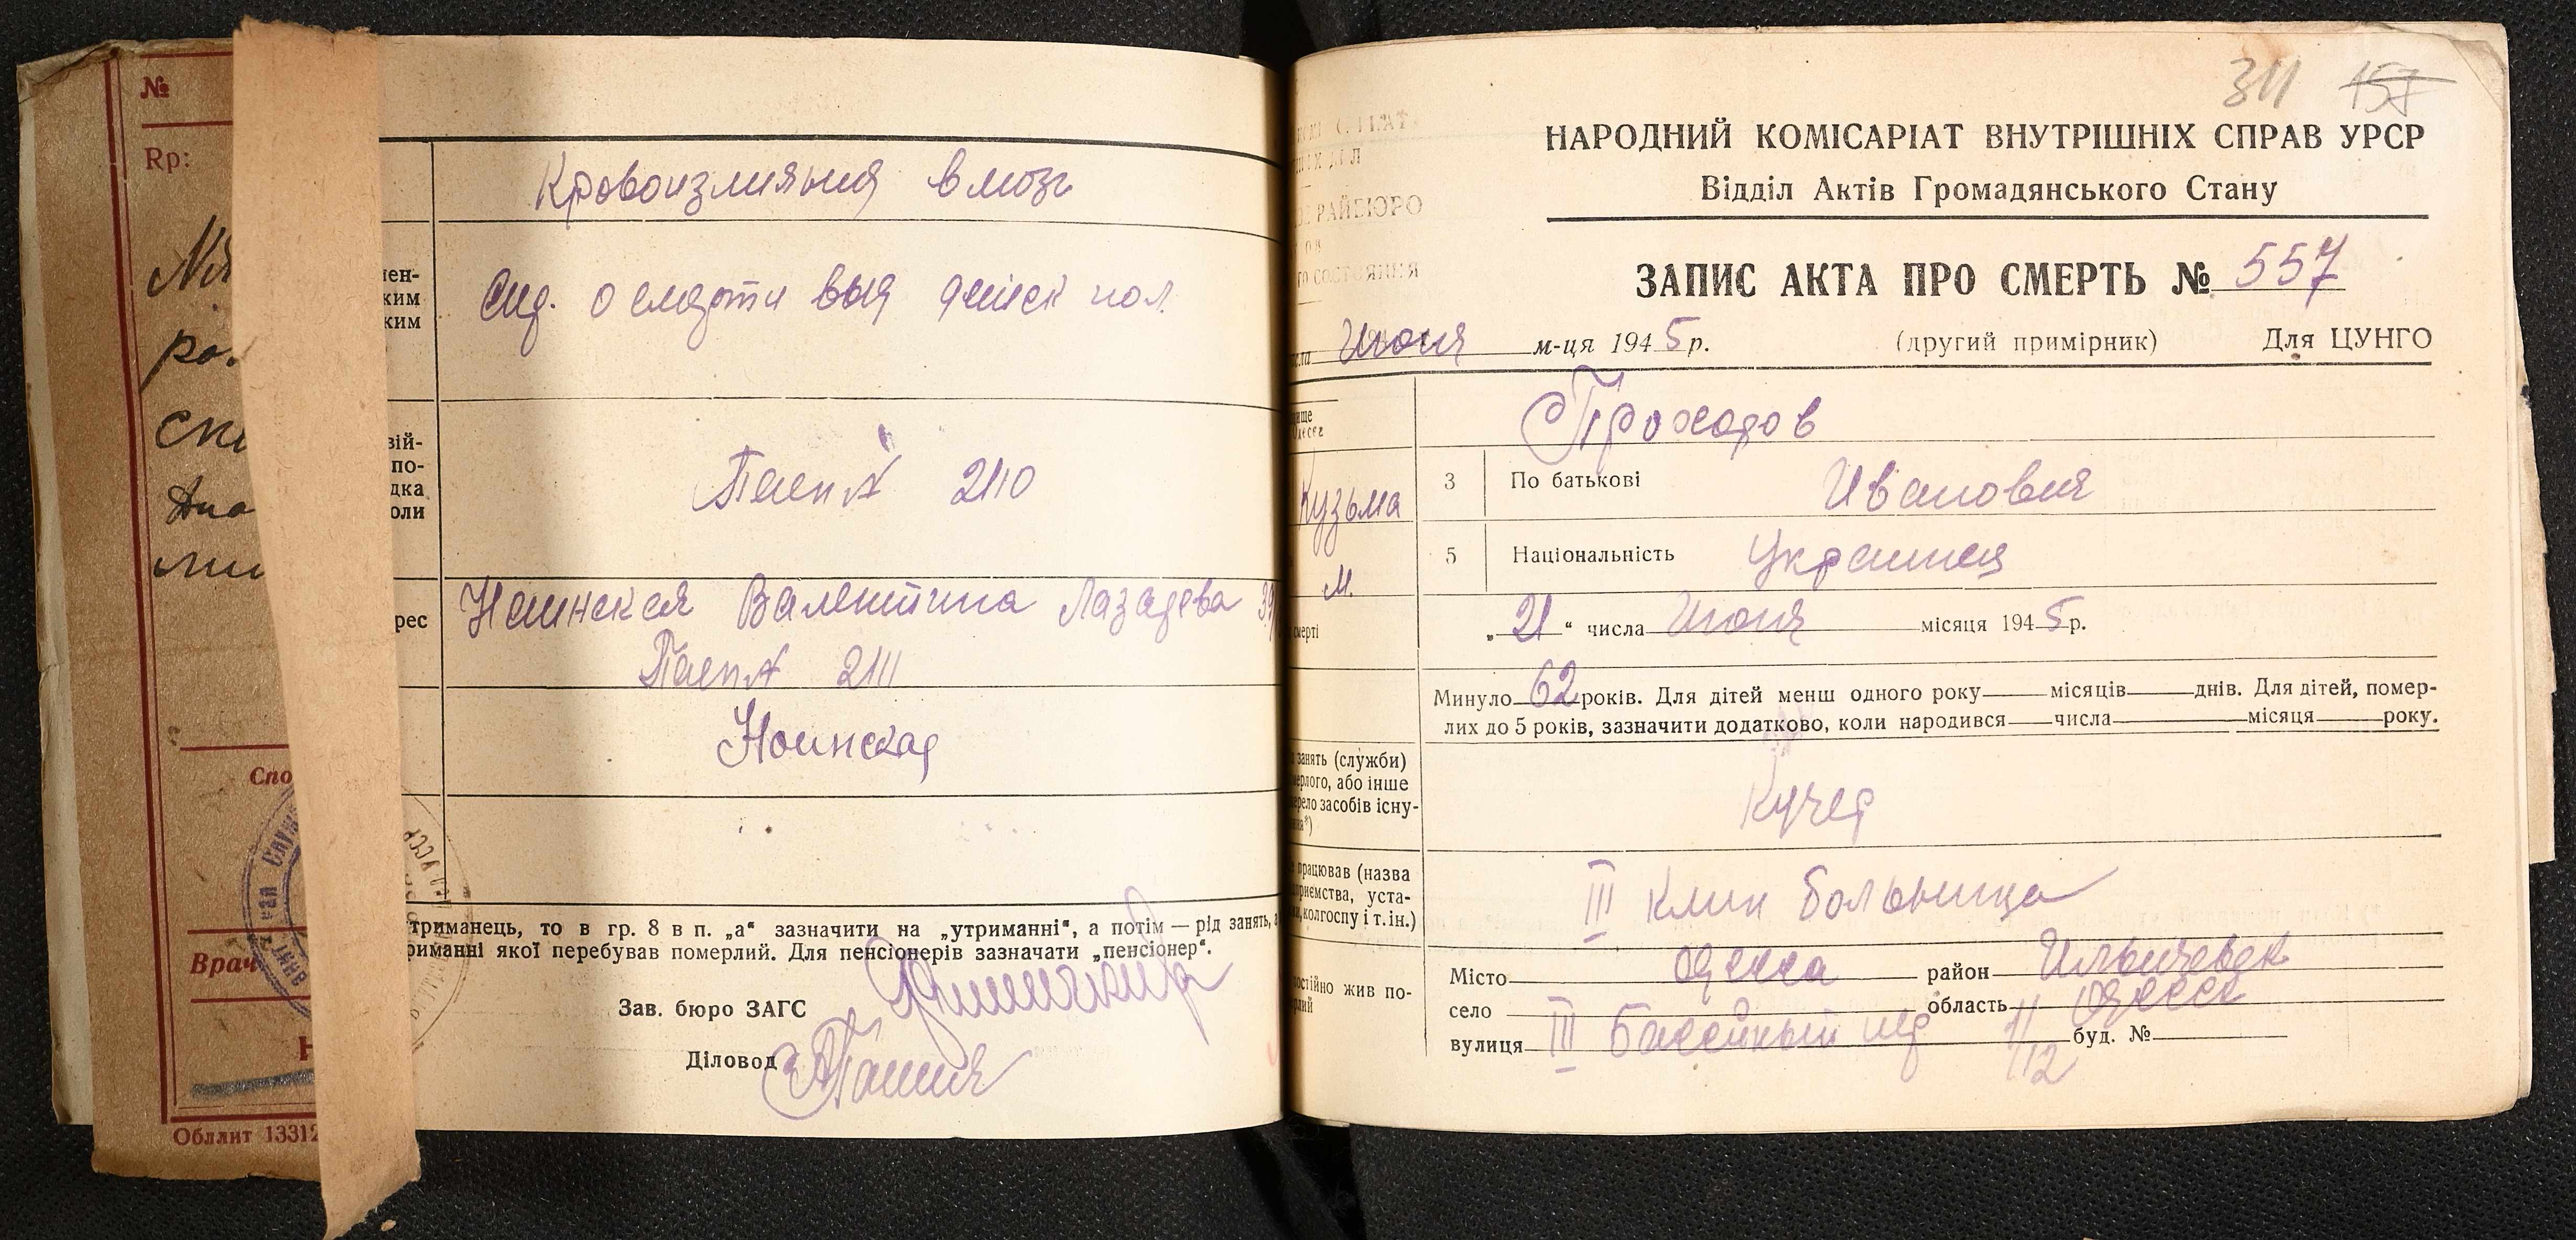 №
Rp:
Спо
Врач
Обллит 13312
Кровоизлияния в мозг
мен-
ким
ким
вій-
по-
дка
оли
Пасп № 2110
рес
Валентина Лазарева 39
Пасп № 2111
Ноинская
триманець, то в гр. 8 в п. „а“ зазначити на „утриманні“, а потім — рід занять, а
риманні якої перебував померлий. Для пенсіонерів зазначати „пенсіонер“.
Зав. бюро ЗАГС
Діловод
311 157
НАРОДНИЙ КОМІСАРІАТ ВНУТРІШНІХ СПРАВ УРСР
Відділ Актів Громадянського Стану
РАЙБЮРО
ГО СОСТОЯНИЯ
ЗАПИС АКТА ПРО СМЕРТЬ № 557
Июня м-ця 1945 р. (другий примірник) Для ЦУНГО
Проходов
Кузьма 3 По батькові Иванович
М. 5 Національність Украинец
смерті „21“ числа Июня місяця 1945 р.
Минуло 62 років. Для дітей менш одного року місяців днів. Для дітей, помер-
лих до 5 років, зазначити додатково, коли народився числа місяця року.
занять (служби)
мерлого, або інше
ерело засобів існу-
ня*)
Кучер
працював (назва
приємства, уста-
колгоспу і т. ін.)
III Клин больница
постійно жив по-
рлий
Місто Одесса район Ильичевск
село область Одесск
вулиця III Бассейный пер 11/12 буд. №